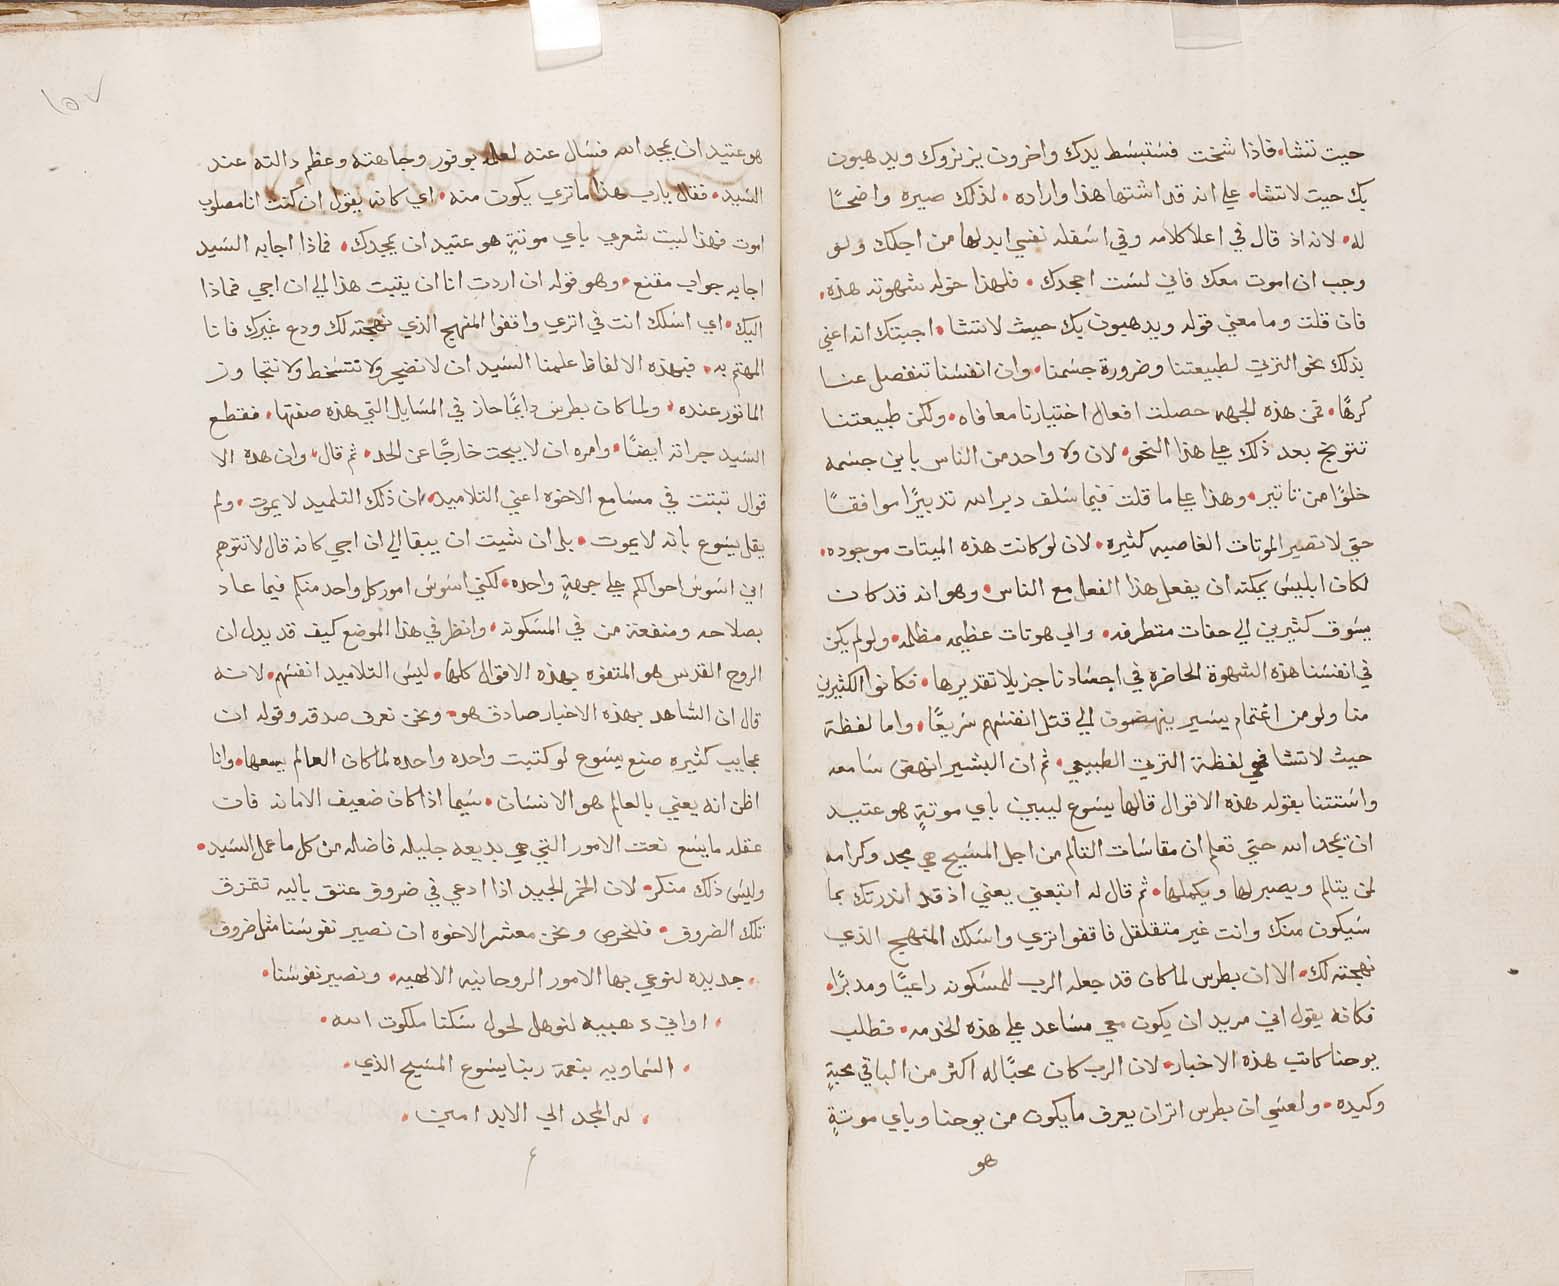 حيت تتشا، فاذا شخت فستبسط يدك واخرون يزنزوك ويدهبون
بك حيت لاتشا، علي انه قد اشتها هذا واراده، لذلك صيره واضحًا
له، لانه اذ قال في اعلا كلامه وفي اسفله نفسي ابدلها من اجلك ولو
وجب ان اموت معك فاني لست اجحدك، فلهذا خوله شهوته هذه،
فان قلت وما معني قوله ويدهبون بك حيث لاتشا، اجبتك انه اعني
بذلك نحو التزتي لطبيعتنا وضرورة جسمنا، وان انفسنا تنفصل عنا
كرهًا، فمن هذه الجهه حصلت افعال اختيارنا معافاه، ولكن طبيعتنا
تتوبخ بعد ذلك علي هذا النحو، لان ولا واحد من الناس باين جسمه
خلوًا من تاتير، وهذا علي ما قلت فيما سلف دبر الله تدبيرًا موافقًا
حتي لاتصير الموتات الغاصبه كثيره، لان لو كانت هذه الميتات موجوده،
لكان ابليس يمكنه ان يفعل هذا الفعل مع الناس، وهو انه قد كان
يسوق كثيرين الي حفات متطرفه، والي هوتات عظيمه مظلمه، ولو لم يكن
في انفسنا هذه الشهوة الحاضره في اجسادنا جزيلا تقديرها، فكانوا الكثيرين
منا ولو من اغتمام يسير ينهضون الي قتل انفسهم سريعًا، واما لفظة
حيث لاتشا فهي لفظة التزتي الطبيعي، ثم ان البشير انهض سامعه
واستتنا بقوله هذه الاقوال قالها يسوع ليبين باي موتةٍ هو عتيد
ان يمجد الله حتي تعلم ان مقاسات التالم من اجل المسيح هي مجد وكرامه
لمن يتالم ويصبر لها ويكملها، ثم قال له اتبعني يعني اذ قد انذرتك بما
سيكون منك وانت غير متقلقل فاقفوا اتري واسلك المنهج الذي
نهجته لك، الا ان بطرس لما كان قد جعله الرب للمسكونه راعيًا ومدبرًا،
فكانه يقول اني مريد ان يكون معي مساعد علي هذه الخدمه، فطلب
يوحنا كاتب هذه الاخبار، لان الرب كان محبًا له اكثر من الباقي محبةٍ
وكيده، ولعسي ان بطرس اتر ان يعرف ما يكون من يوحنا وباي موتةٍ
هو
١٥٧
هو عتيد ان يمجد الله فسال عنه لعلمه بوفور وجاهته وعظم دالته عند
السيد، فقال يارب هذا ماتري يكون منه، اي كانه يقول ان كنت انا مصلوب
اموت فهذا ليت شعري باي موتةٍ هو عتيد ان يمجدك، فماذا اجابه السيد
اجابه جواب مقنع، وهو قوله ان اردت انا ان يتبت هذا الي ان اجي فماذا
اليك، اي اسلك انت في اتري واقفوا المنهج الذي نهجته لك ودع غيرك فانا
المهتم به، فبهذه الالفاظ علمنا السيد ان لا نضجر ولا نتسخط ولا نتجاوز
الماتور عنده، ولما كان بطرس دايمًا حاز في المسايل التي هذه صفتها، فقطع
السيد جراته ايضًا، وامره ان لا يبحت خارجًا عن الحد، ثم قال، وان هذه الا
قوال تبتت في مسامع الاخوه اعني التلاميد، ان ذلك التلميد لا يموت، ولم
يقل يسوع بانه لا يموت، بل ان شيت ان يبقا الي ان اجي كانه قال لا تتوهم
اني اسوس احوالكم علي جهةٍ واحده، لكني اسوس امور كل واحد منكم فيما عاد
بصلاحه ومنفعة من في المسكونه، وانظر في هذا الموضع كيف قد يدل ان
الروح القدس هو المتفوه بهذه الاقوال كلها، ليس التلاميد انفسهم، لانه
قال ان الشاهد بهذه الاخبار صادق هو، ونحن نعرف صدقه وقوله ان
عجايب كثيره صنع يسوع لو كتبت واحده واحده لما كان العالم يسعها، وانا
اظن انه يعني بالعالم هو الانسان، سيما اذا كان ضعيف الامانه فان
عقله مايسع نعت الامور التي هي بديعه جليله فاضله من كل ماعمل السيد،
وليس ذلك منكر، لان الخمر الجيد اذا ادعي في ضروف عتق باليه تتمزق
تلك الضروف، فلنحرص ونحن معشر الاخوه ان نصير نفوسنا مثل ضروف
، جديده لنوعي بها الامور الروحانيه الالهيه، ونصير نفوسنا،
، اواني دهبيه لنوهل لحول سكنا ملكوت الله،
، السماويه بنعمة ربنا يسوع المسيح الذي،
، له المجد الي الابد امين،